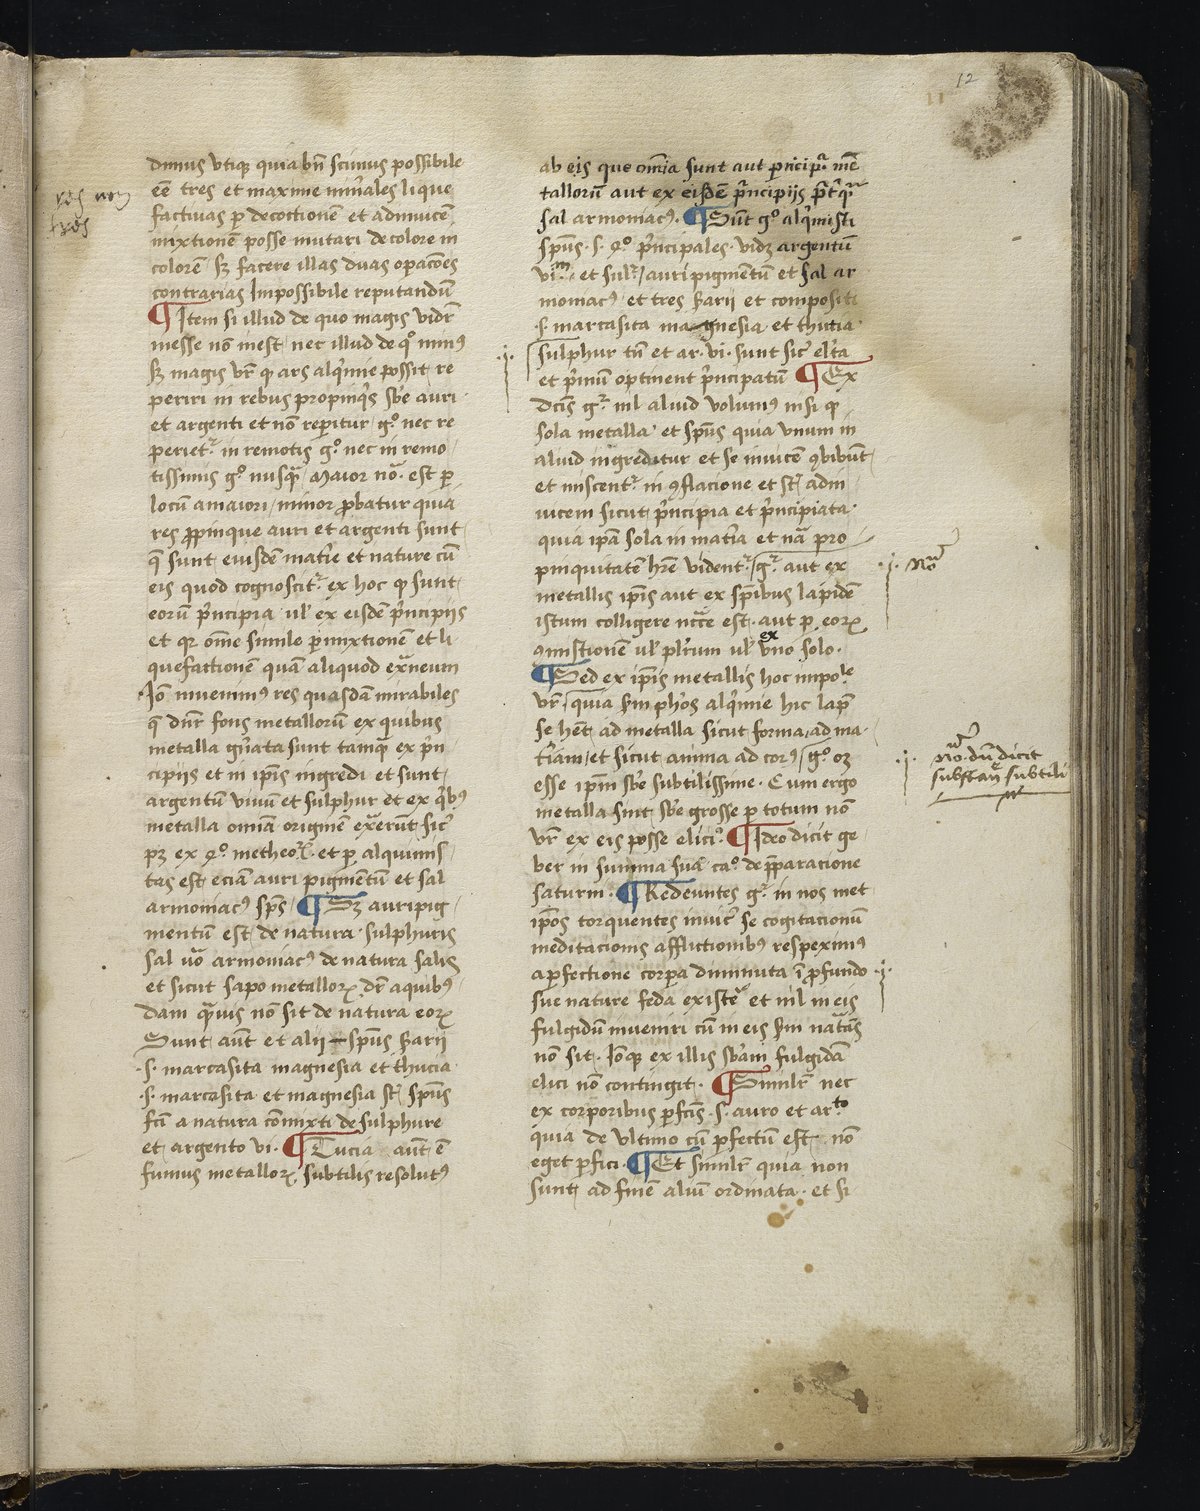 12
dimus vtiqꝫ quia bn̄ scimus possibile
eē tres et maxime mīerales lique
factiuas ꝑ decoctionē et adinuicē
mixtionē posse mutari de colore in
colorē / sꝫ facere illas duas opacōes
contrarias Impossibile reputandū
¶ Item si illud de quo magis vidr̄
inesse nō inest / nec illud de qͦ minꝰ
sꝫ magis vr̄ ꝙ ars alqͥmie possit re
periri in rebus propinqͥs sb̄e auri
et argenti et nō reperitur / gͦ. nec re
perietᷣ in remotis gͦ. nec in remo
tissimis gͦ nusqᷓ / Maior nōͣ. est ꝑ
locū a maiori / minor ꝓbatur quia
res ꝓpinque auri et argenti sunt
q̄ sunt eiusdē mat̄ie et nature cū
eis quod cognoscitᷣ ex hoc ꝙ sunt
eorū pͥncipia vl̓ ex eisdē pͥncipijs
et qꝛ om̄e simile ꝑmixtionē et li
quefactionē quā aliquod ext̄neum
Iō inuenimꝰ res quasdā mirabiles
q̄ dnr̄ fons metallorū ex quibus
metalla gn̄ata sunt tamqᷓ ex pͥn
cipijs et in ip̄is ingredi et sunt
argentū viuū et sulphur et ex qͥbꝰ
metalla om̄ia originē ex̄erūt sic̄
pꝫ ex 4ͦ. metheoꝝ. et ꝑ alquimis
tas est eciā auri pigmentū et sal
armoniacꝰ sp̄s / ¶ Sꝫ auripig
mentū est de natura sulphuris
sal vͦo armoniacꝰ de natura salis
et sicut sapo metalloꝝ dr̄ a quibꝰ
dam qᷓuis nō sit de natura eoꝝ
Sunt aūt et alij — sp̄us s̄arij
.s. marcasita magnesia et thucia
.s. marcasita et magnesia st̄ sp̄us
fc̄i a natura cōmixti de sulphure
et argento vi. ¶ Tucia aūt ē
fumus metalloꝝ subtilis resolutꝰ
ab eis que om̄ia sunt aut principᷓ. me
tallorū aut ex eisdē pͥncipijs
sal armoniacꝰ. ¶ Sūt gͦ alqͥmisti
sp̄us .s. 4ͦ. pͥncipales . vidꝫ argentū
viͫ. et sulᷣ. / auripigmentū et sal ar
moniacꝰ et tres s̄arij et compositi
.s. marcasita magnesia et thucia
sulphur tn̄ et ar. vi. sunt sic̄ elt̄a
et pͥmū optinent pͥncipatū ¶ Ex
dc̄is gᷣ. nl̄ aliud volumꝰ nisi ꝙ
sola metalla et sp̄us quia vnum in
aliud ingreditur et se inuicē ꝯbibūt
et miscentᷣ in ꝯflacione et st̄ adin
uicem sicut pͥncipia et pͥncipiata.
quia ip̄a sola in mat̄ia et nāͣ pro
pinquitatē hr̄e videntᷣ. / gᷣ. aut ex
metallis ip̄is aut ex sp̄ibus lapidē
istum colligere nc̄ce est . aut ꝑ eoꝝ
ꝯmistionē vl̓ plr̄ium vl̓ ex vno solo.
¶ Sed ex ip̄is metallis hoc impoˡᵉ
vr̄. / quia sm̄ ph̄os alqͥmie hic lap̄
se het̄ ad metalla sicut forma ad ma
t̄iam / et sicut anima ad corꝰ / gͦ. oꝫ
esse ip̄m sb̄e subtilissime . Cum ergo
metalla sint sb̄e grosse ꝑ totum nō
vr̄ ex eis posse elici. ¶ Idᵒ dicit ge
ber in summa sua caͦ. de p̄ꝑaracione
saturni . ¶ Redeuntes gᷣ. in nos met
ip̄os torquentes inuic̄ se cogitacionū
meditacionis afflictionibꝰ respeximꝰ
a ꝑfectione corꝑa diminuta ī ꝓfundo
sue nature feda existēͣ et nil in eis
fulgidū inueniri cū in eis sm̄ natāᷓs
nō sit . Iō qꝫ ex illis sb̄am fulgidā
elici nō contingit . ¶ Simil̓r nec
ex corporibus ꝑfc̄is .s. auro et arᵗᵒ
quia de vltimo cū ꝑfectū est nō
eget ꝑfici. ¶ Et simil̓r quia non
sunt ad finē aliū ordinata . et si
res non
tres
.i.
.i. Noͣ
.i. Noͣ. dū dicit
subst̄an̄ subtili
.i.